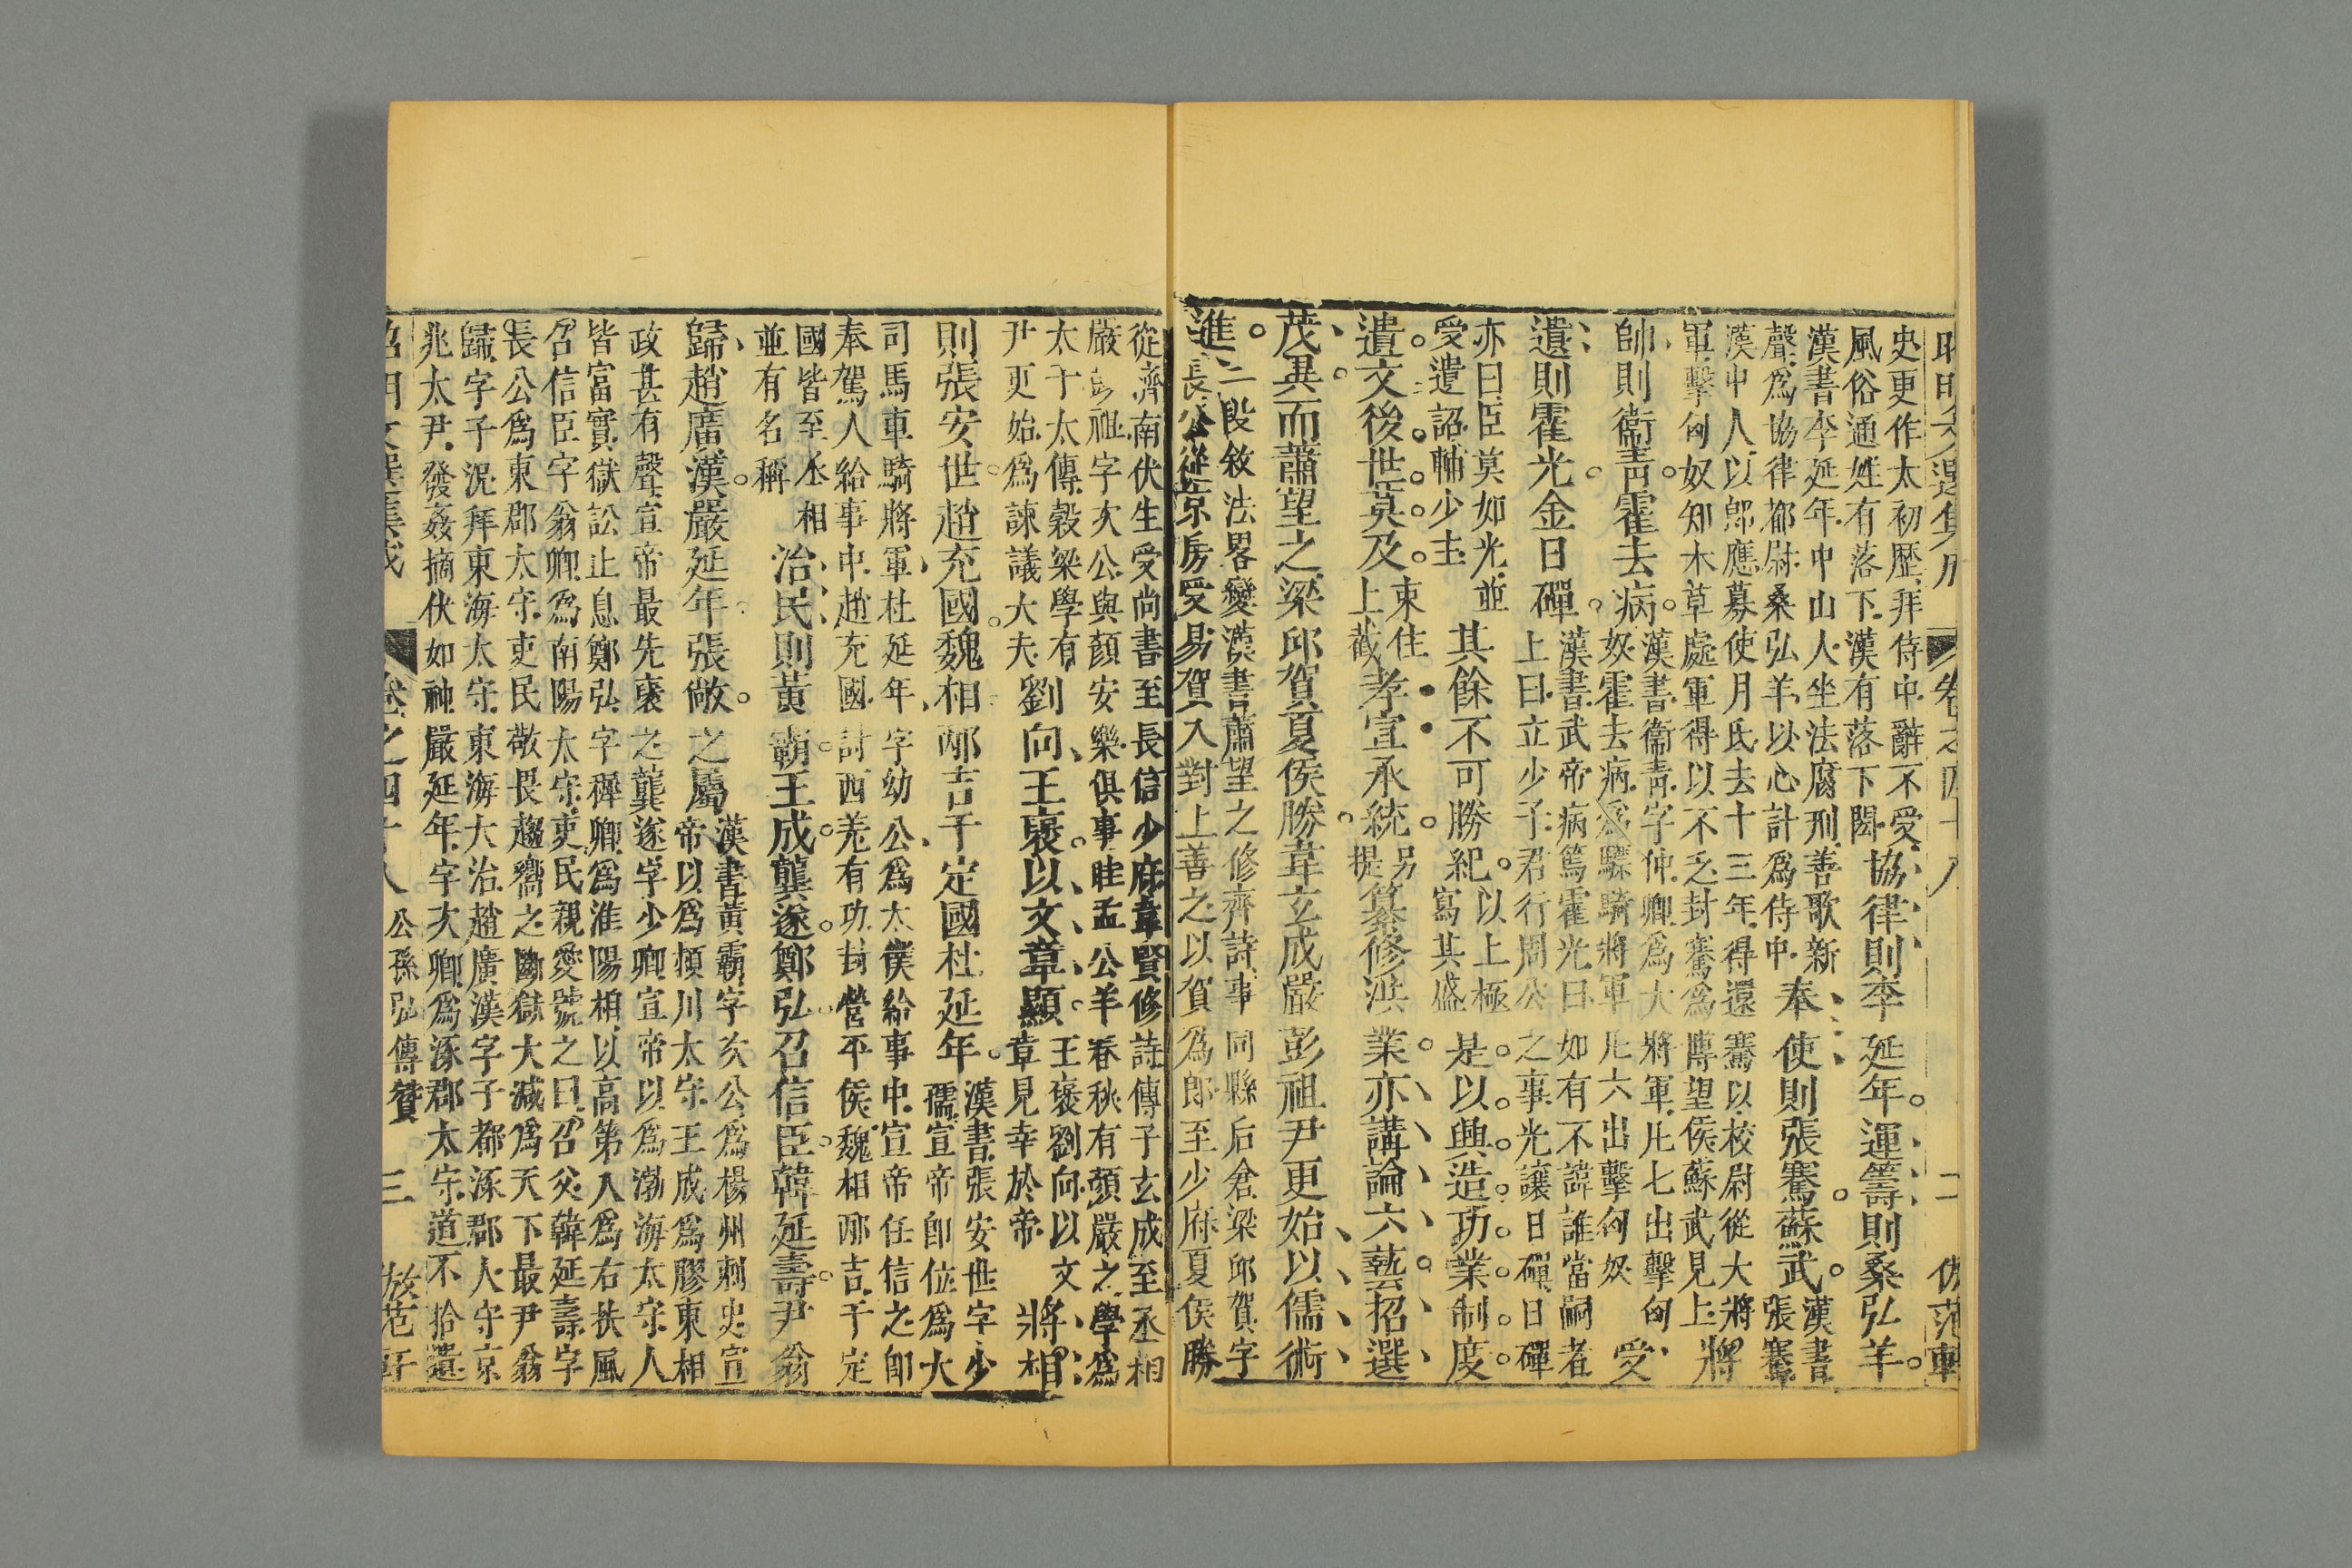 昭明文選集成 卷之四十八 二 倣范軒
史更作太初歷拜侍中辭不受
風俗通姓有落下漢有落下閎
協律則李延年運籌則桑弘羊
漢書李延年中山人坐法腐刑善歌新
聲為協律都尉桑弘羊以心計為侍中
奉使則張騫蘇武
漢書
張騫
漢中人以郎應募使月氏去十三年得還騫以校尉從大將
軍擊匈奴知水草處軍得以不乏封騫為博望侯蘇武見上
將
帥則衛青霍去病
漢書衛青字仲卿為大將軍凡七出擊匈
奴霍去病為驃騎將軍凡六出擊匈奴
受
遺則霍光金日磾
漢書武帝病篤霍光曰如有不諱誰當嗣者
上曰立少子君行周公之事光讓日磾日磾
亦曰臣莫如光並
受遺詔輔少主
其餘不可勝紀
以上極
寫其盛
是以興造功業制度
遺文後世莫及
束住
上截
孝宣承統
另
提
纂修洪業亦講論六藝招選
茂異而蕭望之梁邱賀夏侯勝韋玄成嚴彭祖尹更始以儒術
進
二段敘法畧變漢書蕭望之修齊詩事同縣后倉梁邱賀字
長公從京房受易賀入對上善之以賀為郎至少府夏侯勝
從濟南伏生受尚書至長信少府韋賢修詩傳子玄成至丞相
嚴彭祖字次公與顏安樂俱事眭孟公羊春秋有顏嚴之學為
太子太傅穀梁學有
尹更始為諫議大夫
劉向王襃以文章顯
王襃劉向以文
章見幸於帝
將相
則張安世趙充國魏相邴吉于定國杜延年
漢書張安世字少
孺宣帝卽位為大
司馬車騎將軍杜延年字幼公為太僕給事中宣帝任信之卽
奉駕人給事中趙充國討西羌有功封營平侯魏相邴吉于定
國皆至丞相
並有名稱
治民則黃霸王成龔遂鄭弘召信臣韓延壽尹翁
歸趙廣漢嚴延年張敞之屬
漢書黃霸字次公為楊州刺史宣
帝以為潁川太守王成為膠東相
政甚有聲宣帝最先襃之龔遂字少卿宣帝以為渤海太守人
皆富實獄訟止息鄭弘字穉卿為淮陽相以高第入為右扶風
召信臣字翁卿為南陽太守吏民親愛號之曰召父韓延壽字
長公為東郡太守吏民敬畏趨嚮之斷獄大減為天下最尹翁
歸字子況拜東海太守東海大治趙廣漢字子都涿郡人守京
兆太尹發姦摘伏如神嚴延年字次卿為涿郡太守道不拾遺
昭明文選集成 卷之四十八 公孫弘傳贊 三 倣范軒